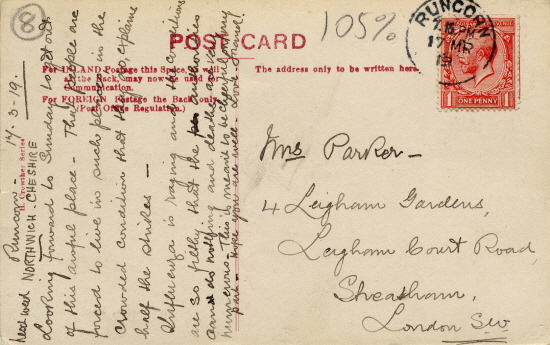 8
105%
POST CARD
For INLAND Postage this Space, as well
as the Back, may now be used for
Communication.
For FOREIGN Postage the Back only.
(Post Office Regulation.)
The address only to be written here.
H. Crowther Series
RUNCORN
PM
17 MR
19
ONE PENNY
1 1
Runcorn - 17-3-19.
next week NORTHWICH, CHESHIRE
Looking forward to Sunday to get out
of this awful place - The people are
forced to live in such places in the
crowded condition that they explains
half the strikes -
Influenza is raging and the conditions
are so filthy that the authorities
can do nothing and deaths are very
numerous. This is meant to be a cheerful
part - Hope you are well - Love
Mrs Parker -
4 Leigham Gardens,
Leigham Court Road,
Streatham,
London SW